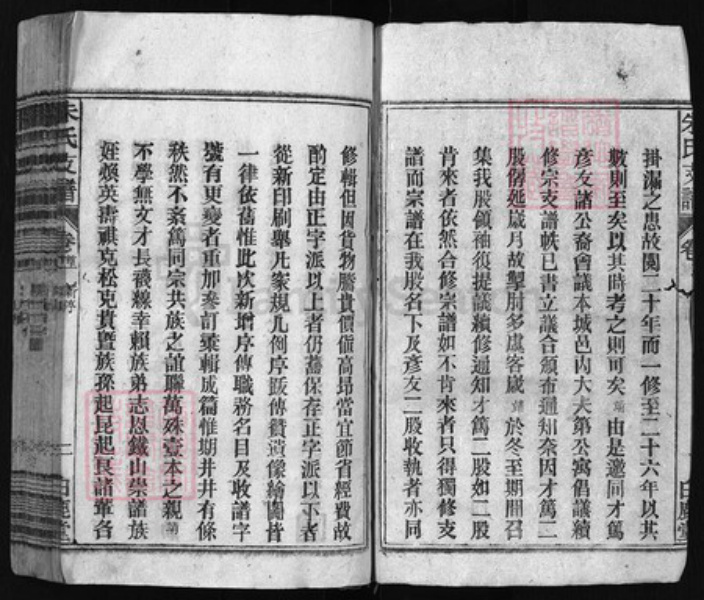 掛漏之患故閱二十年而一修至二十六年以其
數則至矣以其時考之則可矣 端 由是邀同才篤
彥友諸公裔會議本城邑內大夫第公寓倡議續
修宗支譜帙已書立議合頒布通知奈因才篤二
股僞延歲月故掣肘多虞客歲 端 於冬至期間召
集我股領袖復提議續修通知才篤二股如二股
肯來者依然合修宗譜如不肯來者只得獨修支
譜而宗譜在我股名下及彥友二股收執者亦同
修輯但因貨物騰貴價值高昻當宜節省經費故
酌定由正字派以上者仍舊保存正字派以下者
從新印刷舉凡家規凡例序跋傳贊遺像繪圖皆
一律依舊惟此次新增序傳職務名目及收譜字
號有更變者重加參訂彙輯成篇惟期井井有條
秩然不紊篤同宗共族之誼聯萬殊壹本之親 第
不學無文才長襪線幸賴族弟志恩鐵山崇譜族
姪煥英壽祺克松克貴曁族孫起昆起艮諸輩各
朱氏支譜
卷
二
白鹿堂